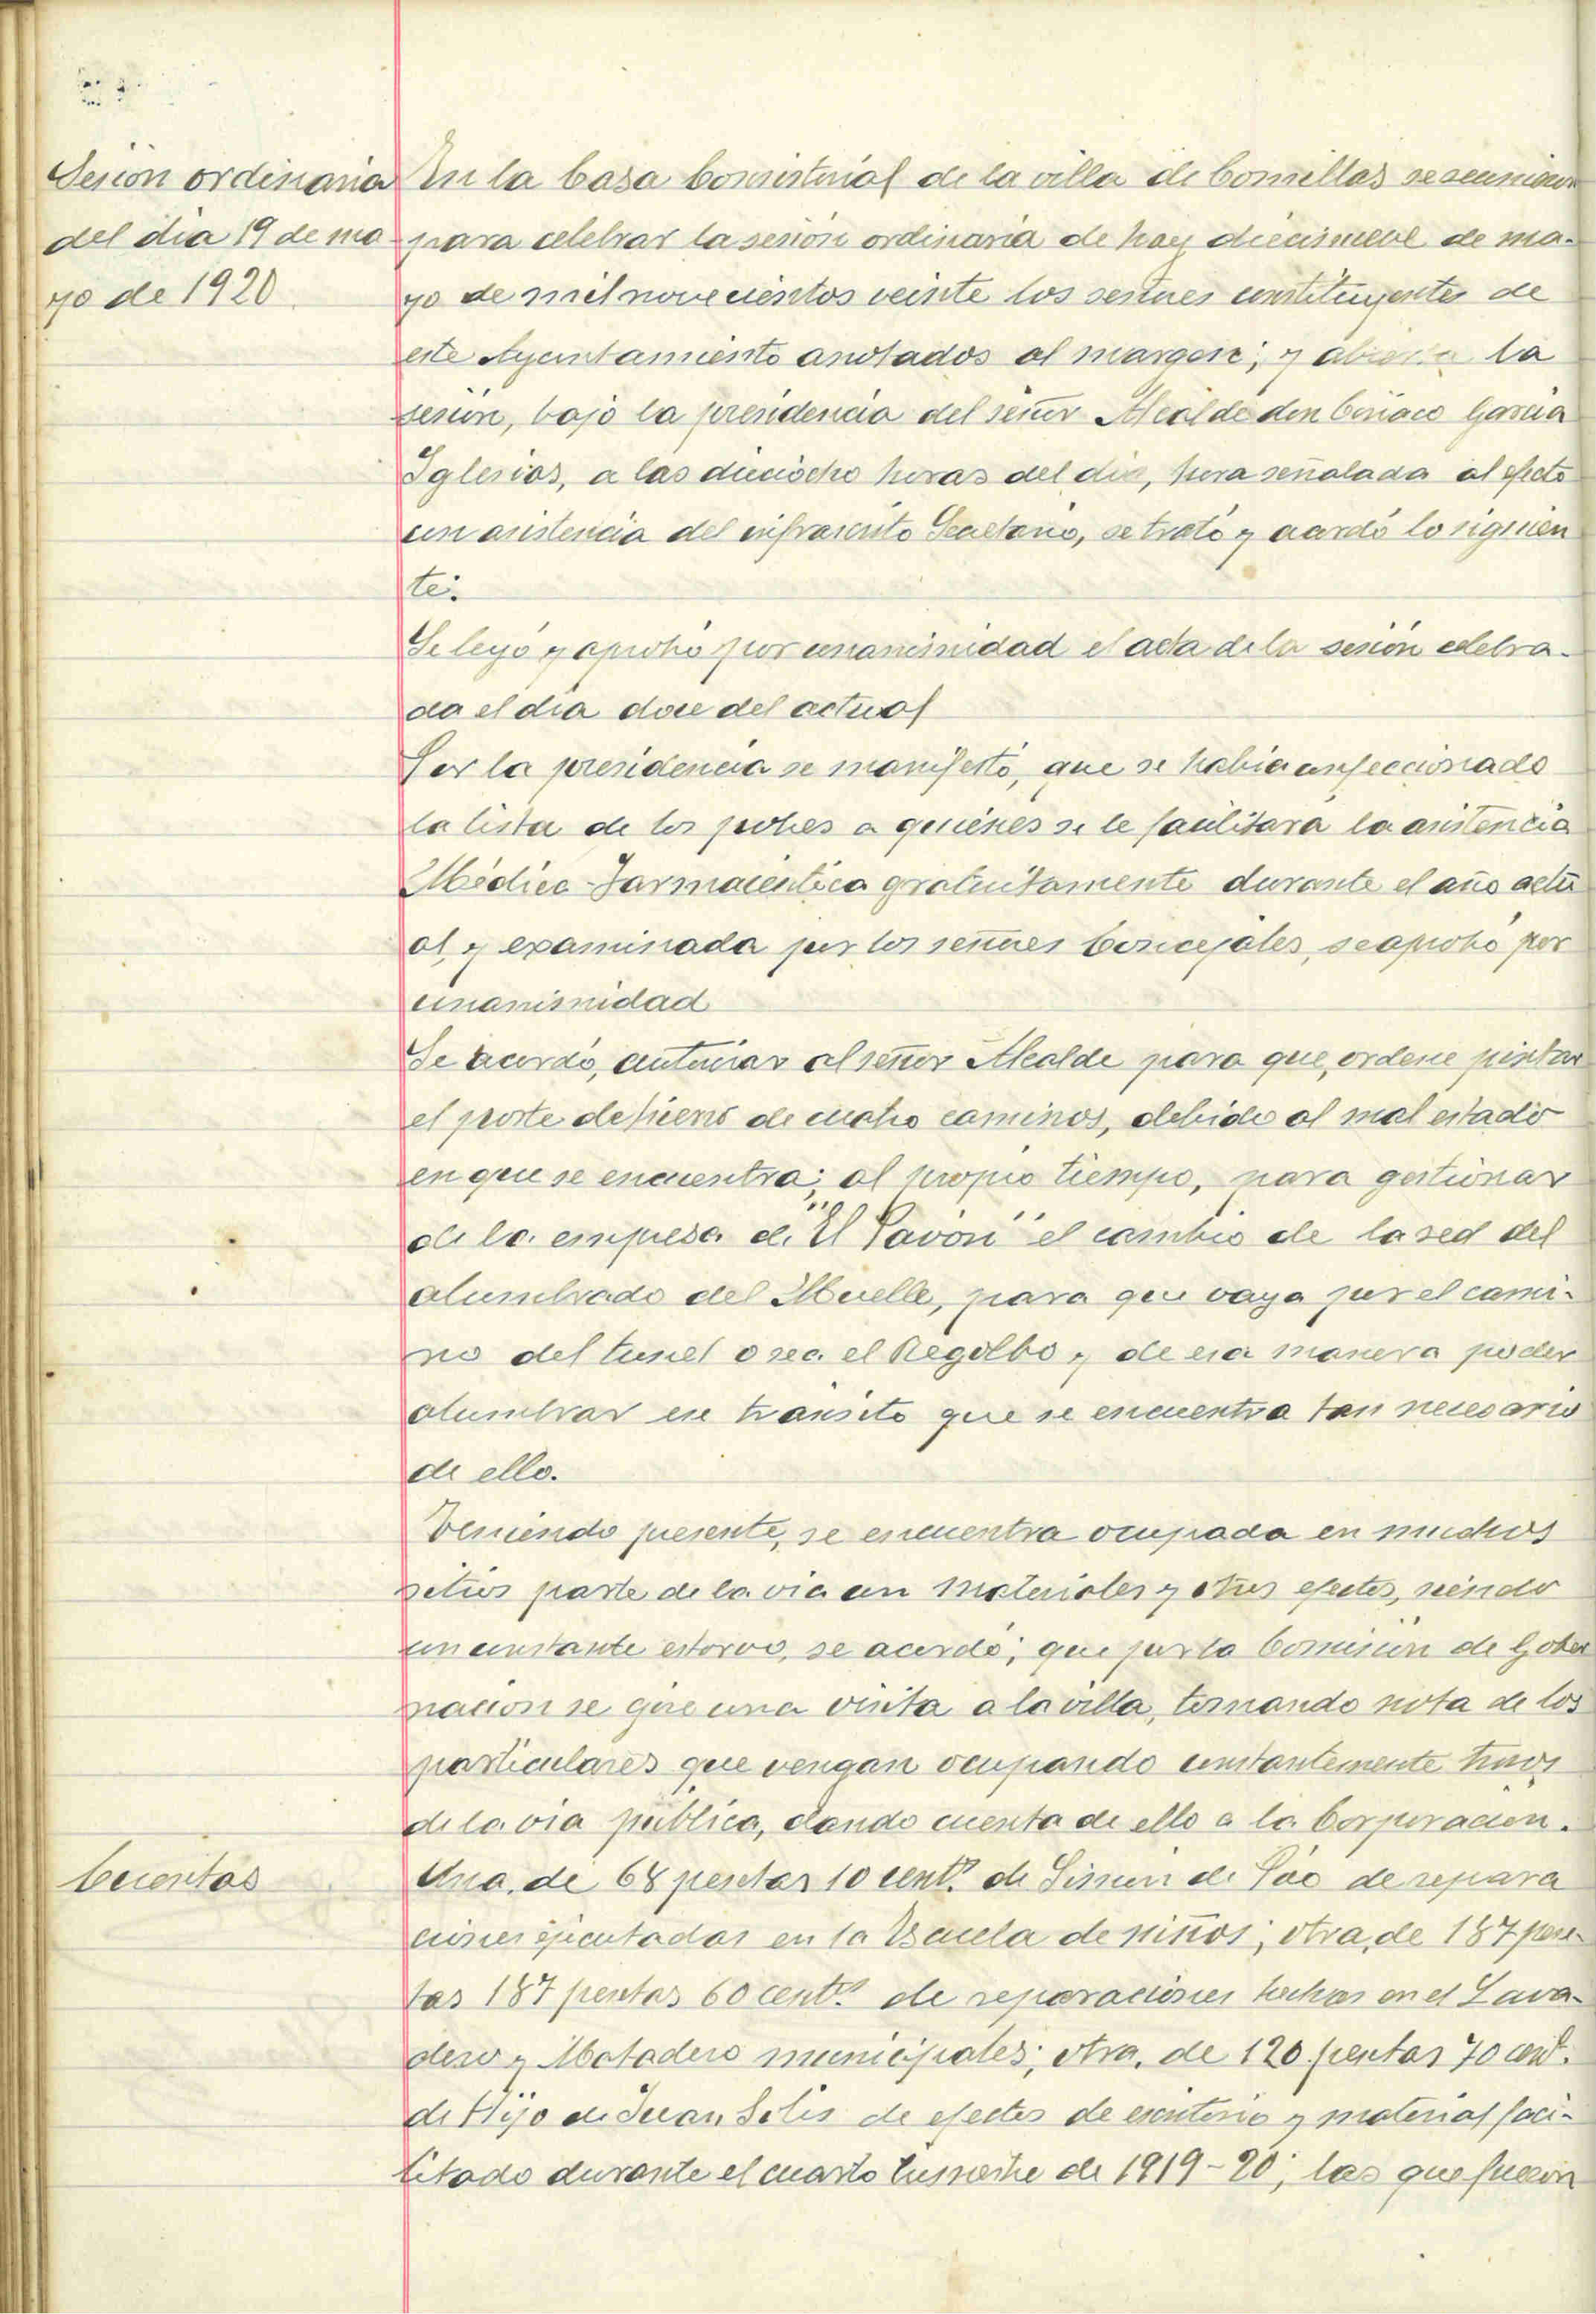 Sesión ordinaria
del dia 19 de ma-
yo de 1920.
En la Casa Consistorial de la villa de Comillas se reunieron
para celebrar la sesión ordinaria de hoy diecinueve de ma-
yo de mil novecientos veinte los señores constituyentes de
este Ayuntamiento anotados al margen; y abierta la
sesión, bajo la presidencia del señor Alcalde don Ciriaco Garcia
Iglesias, a las dieciocho horas del dia, hora señalada al efecto
con asistencia del infrascrito Secretario, se trató y acordó lo siguien
te:
Se leyó y aprobó por unanimidad el acta de la sesión celebra-
da el dia doce del actual
Por la presidencia se manifestó, que se habia confeccionado
la lista de los pobres a quienes se le facilitará la asistencia
Médico-Farmacéutica gratuitamente durante el año actu
al, y examinada por los señores Concejales, se aprobó por
unanimidad
Se acordó, autorizar al señor Alcalde para que, ordene pintar
el poste de hierro de cuatro caminos, debido al mal estado
en que se encuentra; al propio tiempo, para gestionar
de la empresa de "El Pavón" el cambio de la red del
alumbrado del Muelle, para que vaya por el cami-
no del tunel o sea el Regolbo y de esa manera poder
alumbrar ese transito que se encuentra tan necesario
de ello.
Teniendo presente, se encuentra ocupada en muchos
sitios parte de la via con materiales y otros efectos, siendo
un constante estorvo, se acordó; que por la Comisión de Gober
nación se gire una visita a la villa, tomando nota de los
particulares que vengan ocupando constantemente trozos
de la via pública, dando cuenta de ello a la Corporación.
Cuentas
Una, de 68 pesetas 10 cents. de Simón de Páo de repara
ciones ejecutadas en la Escuela de niños; otra, de 187 pese-
tas 187 pesetas 60 cents. de reparaciones hechas en el Lava-
dero y Matadero municipales; otra, de 120 pesetas 70 cent.
de Hijo de Juan Solis de efectos de escritorio y material faci-
litado durante el cuarto trimestre de 1919-20; las que fueron